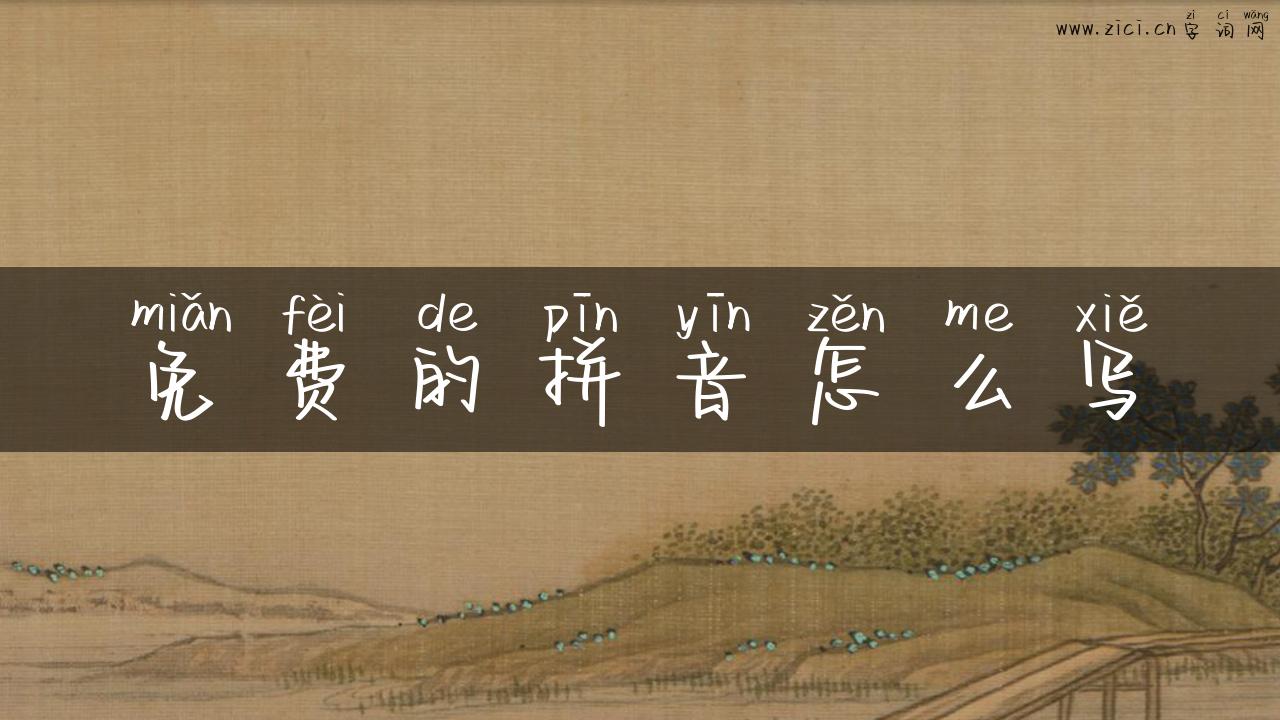 zì cí wǎng
www.zici.cn 字 词 网
miǎn fèi de pīn yīn zěn me xiě
免 费 的 拼 音 怎 么 写